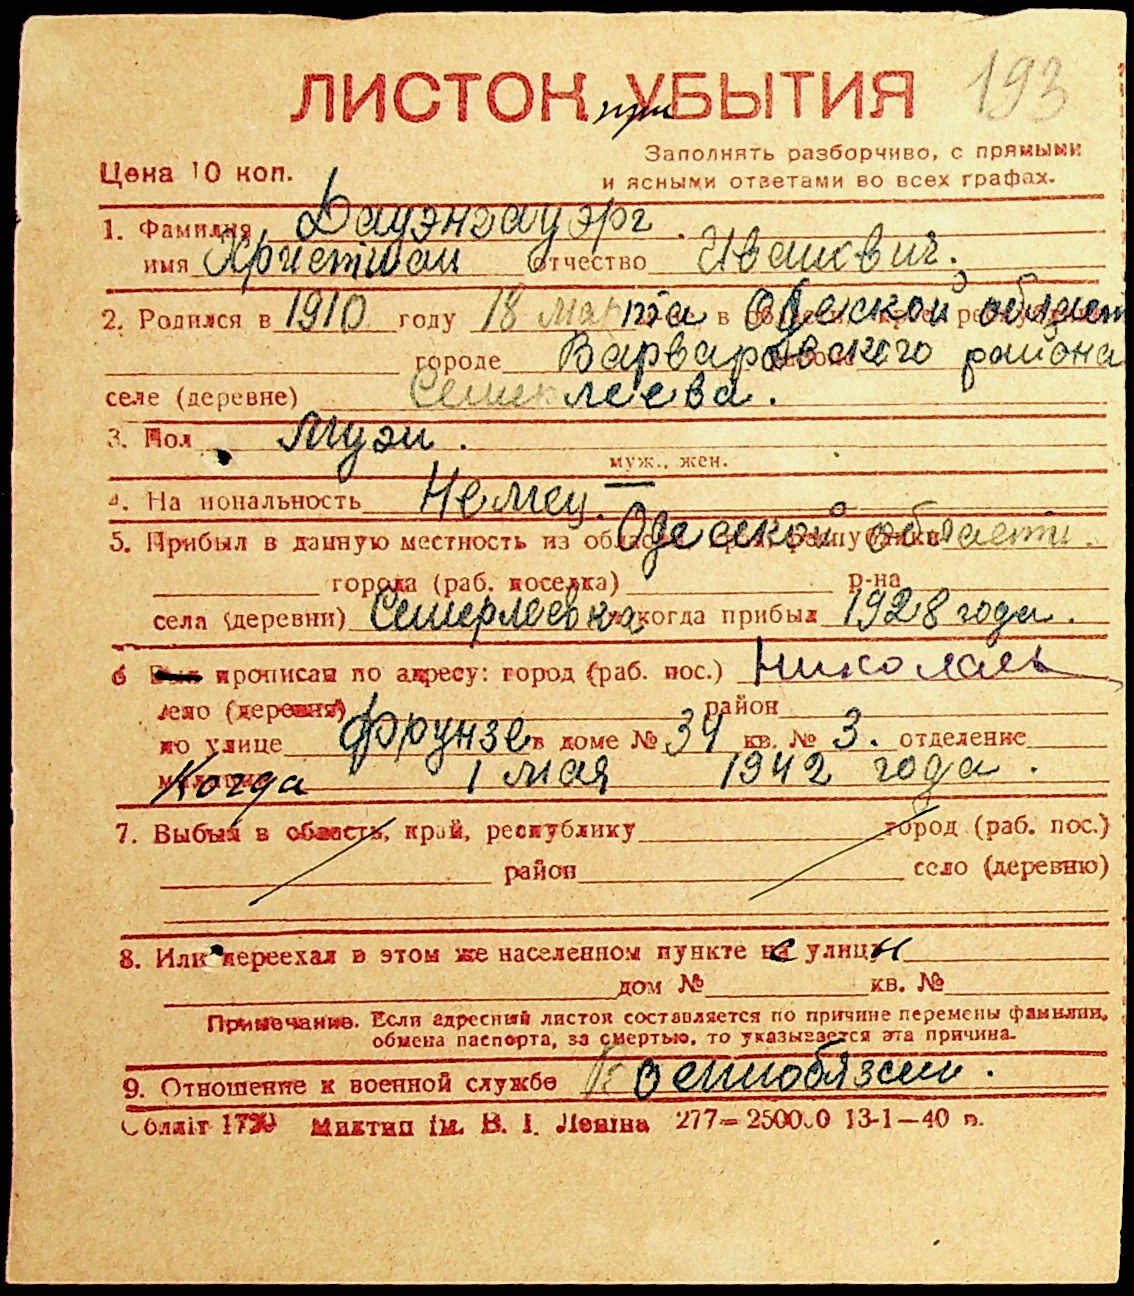 193
ЛИСТОК при УБЫТИЯ
Заполнять разборчиво, с прямыми
Цена 10 коп. и ясными ответами во всех графах.
1. Фамилия
имя Христиан отчество Иванович.
2. Родился в 1910 году 18 марта в Одеской област
городе Варваровского района
селе (деревне) Семерлеева.
3. Пол Музи.
муж., жен.
4. Национальность Немец.
5. Прибыл в данную местность из Одеской области.
города (раб. поселка) р-на
села (деревни) Семерлеевка когда прибыл 1928 года.
6 Был прописан по адресу: город (раб. пос.) Николаев
село (деревня) район
по улице Фрунзе в доме № 34 кв. № 3. отделение
милиции Когда 1 мая 1942 года.
7. Выбыл в область, край, республику город (раб. пос.)
район село (деревню)
8. Или переехал в этом же населенном пункте с улицы
дом № кв. №
Примечание. Если адресный листок составляется по причине перемены фамилии,
обмена паспорта, за смертью, то указывается эта причина.
9. Отношение к военной службе Военнобязан.
Обллiт 1730 Миктип iм. В. I. Ленiна 277—250000 13-1—40 п.